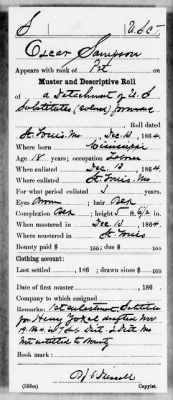 S | U S C T
Oscar Sampson
Appears with rank of Pvt on
Muster and Descriptive Roll
of a Detachment of U. S
Substitutes (colored) forward
Roll dated
St. Louis Mo Dec 13, 1864
Where born Mississippi
Age 18 years; occupation Laborer
When enlisted Dec 13, 1864
Where enlisted St. Louis, Mo
For what period enlisted 3 years.
Eyes ; hair
Complexion ; height 5 ft. 6½ in.
When mustered in Dec 13, 1864
Where mustered in St Louis
Bounty paid $ 100; due $ 100
Clothing account:
Last settled , 186 ; drawn since $ 100
Date of first muster , 186
Company to which assigned
Remarks: 1st enlistment Substitute
for Henry drafted Nov
19. 1864 Sub Dist. 2 Dist Mo
Not entitled to bounty
Book mark:
(356a) Copyist.